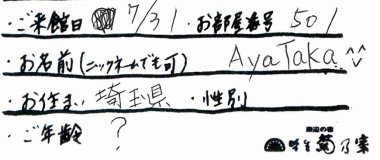 ・ご来館日 7/31 ・お部屋番号 501
・お名前(ニックネームでも可) AyaTaka ^^
・お住まい 埼玉県 ・性別
・ご年齢 ?
渡辺の宿
味生菊乃家